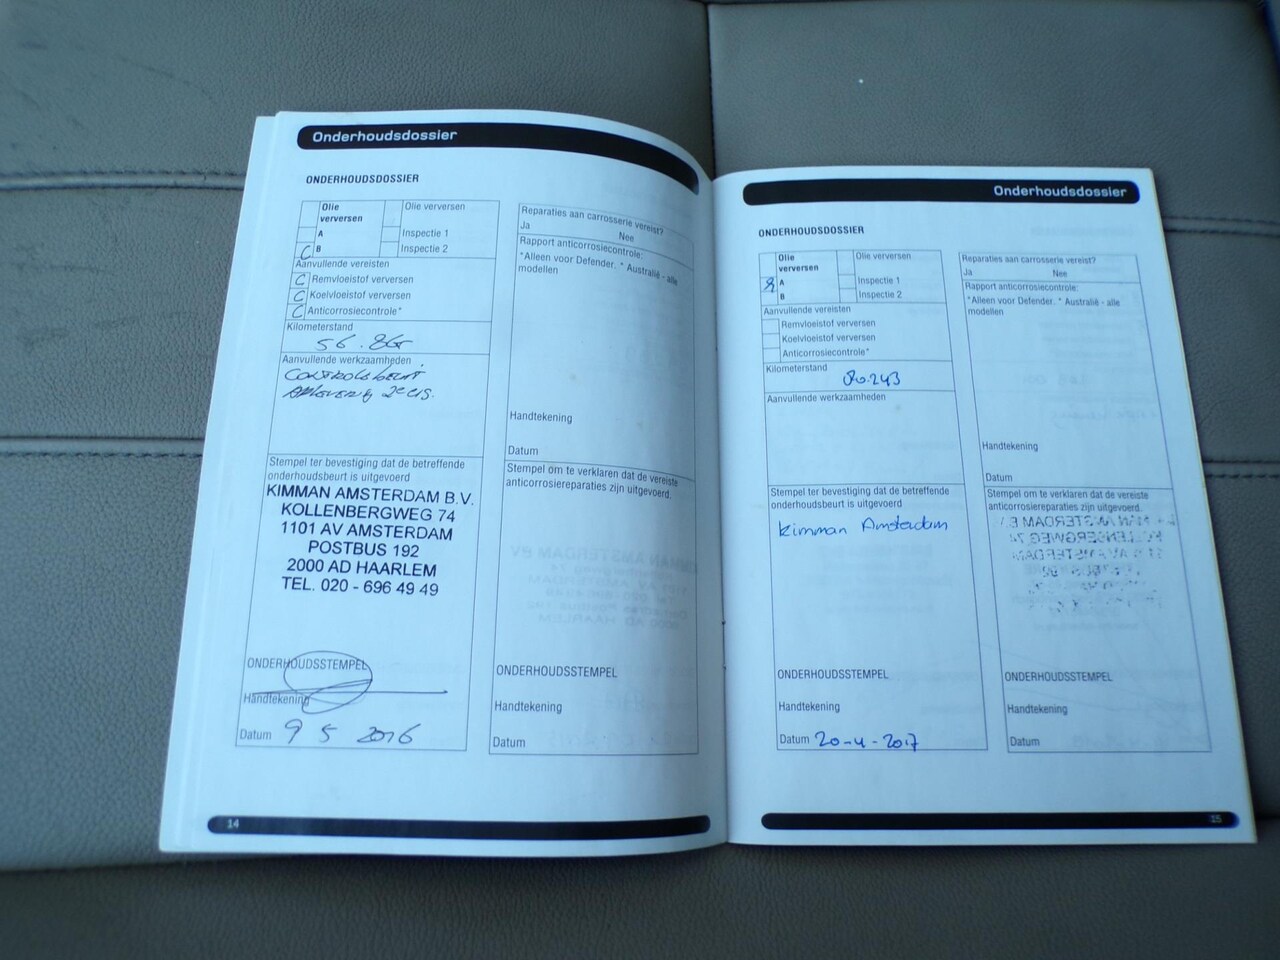 Onderhoudsdossier
ONDERHOUDSDOSSIER
Olie verversen
Olie verversen
A
Inspectie 1
C B
Inspectie 2
Aanvullende vereisten
C Remvloeistof verversen
C Koelvloeistof verversen
C Anticorrosiecontrole*
Kilometerstand
Aanvullende werkzaamheden
Stempel ter bevestiging dat de betreffende
onderhoudsbeurt is uitgevoerd
KIMMAN AMSTERDAM B.V.
KOLLENBERGWEG 74
1101 AV AMSTERDAM
POSTBUS 192
2000 AD HAARLEM
TEL. 020 - 696 49 49
ONDERHOUDSSTEMPEL
Handtekening
Datum 9 5 2016
Reparaties aan carrosserie vereist?
Ja Nee
Rapport anticorrosiecontrole:
*Alleen voor Defender. * Australië - alle
modellen
Handtekening
Datum
Stempel om te verklaren dat de vereiste
anticorrosiereparaties zijn uitgevoerd.
ONDERHOUDSSTEMPEL
Handtekening
Datum
14
Onderhoudsdossier
ONDERHOUDSDOSSIER
Olie verversen
Olie verversen
A
Inspectie 1
B
Inspectie 2
Aanvullende vereisten
Remvloeistof verversen
Koelvloeistof verversen
Anticorrosiecontrole*
Kilometerstand
80.243
Aanvullende werkzaamheden
Stempel ter bevestiging dat de betreffende
onderhoudsbeurt is uitgevoerd
Kimman Amsterdam
ONDERHOUDSSTEMPEL
Handtekening
Datum 20-4-2017
Reparaties aan carrosserie vereist?
Ja Nee
Rapport anticorrosiecontrole:
*Alleen voor Defender. * Australië - alle
modellen
Handtekening
Datum
Stempel om te verklaren dat de vereiste
anticorrosiereparaties zijn uitgevoerd.
ONDERHOUDSSTEMPEL
Handtekening
Datum
15